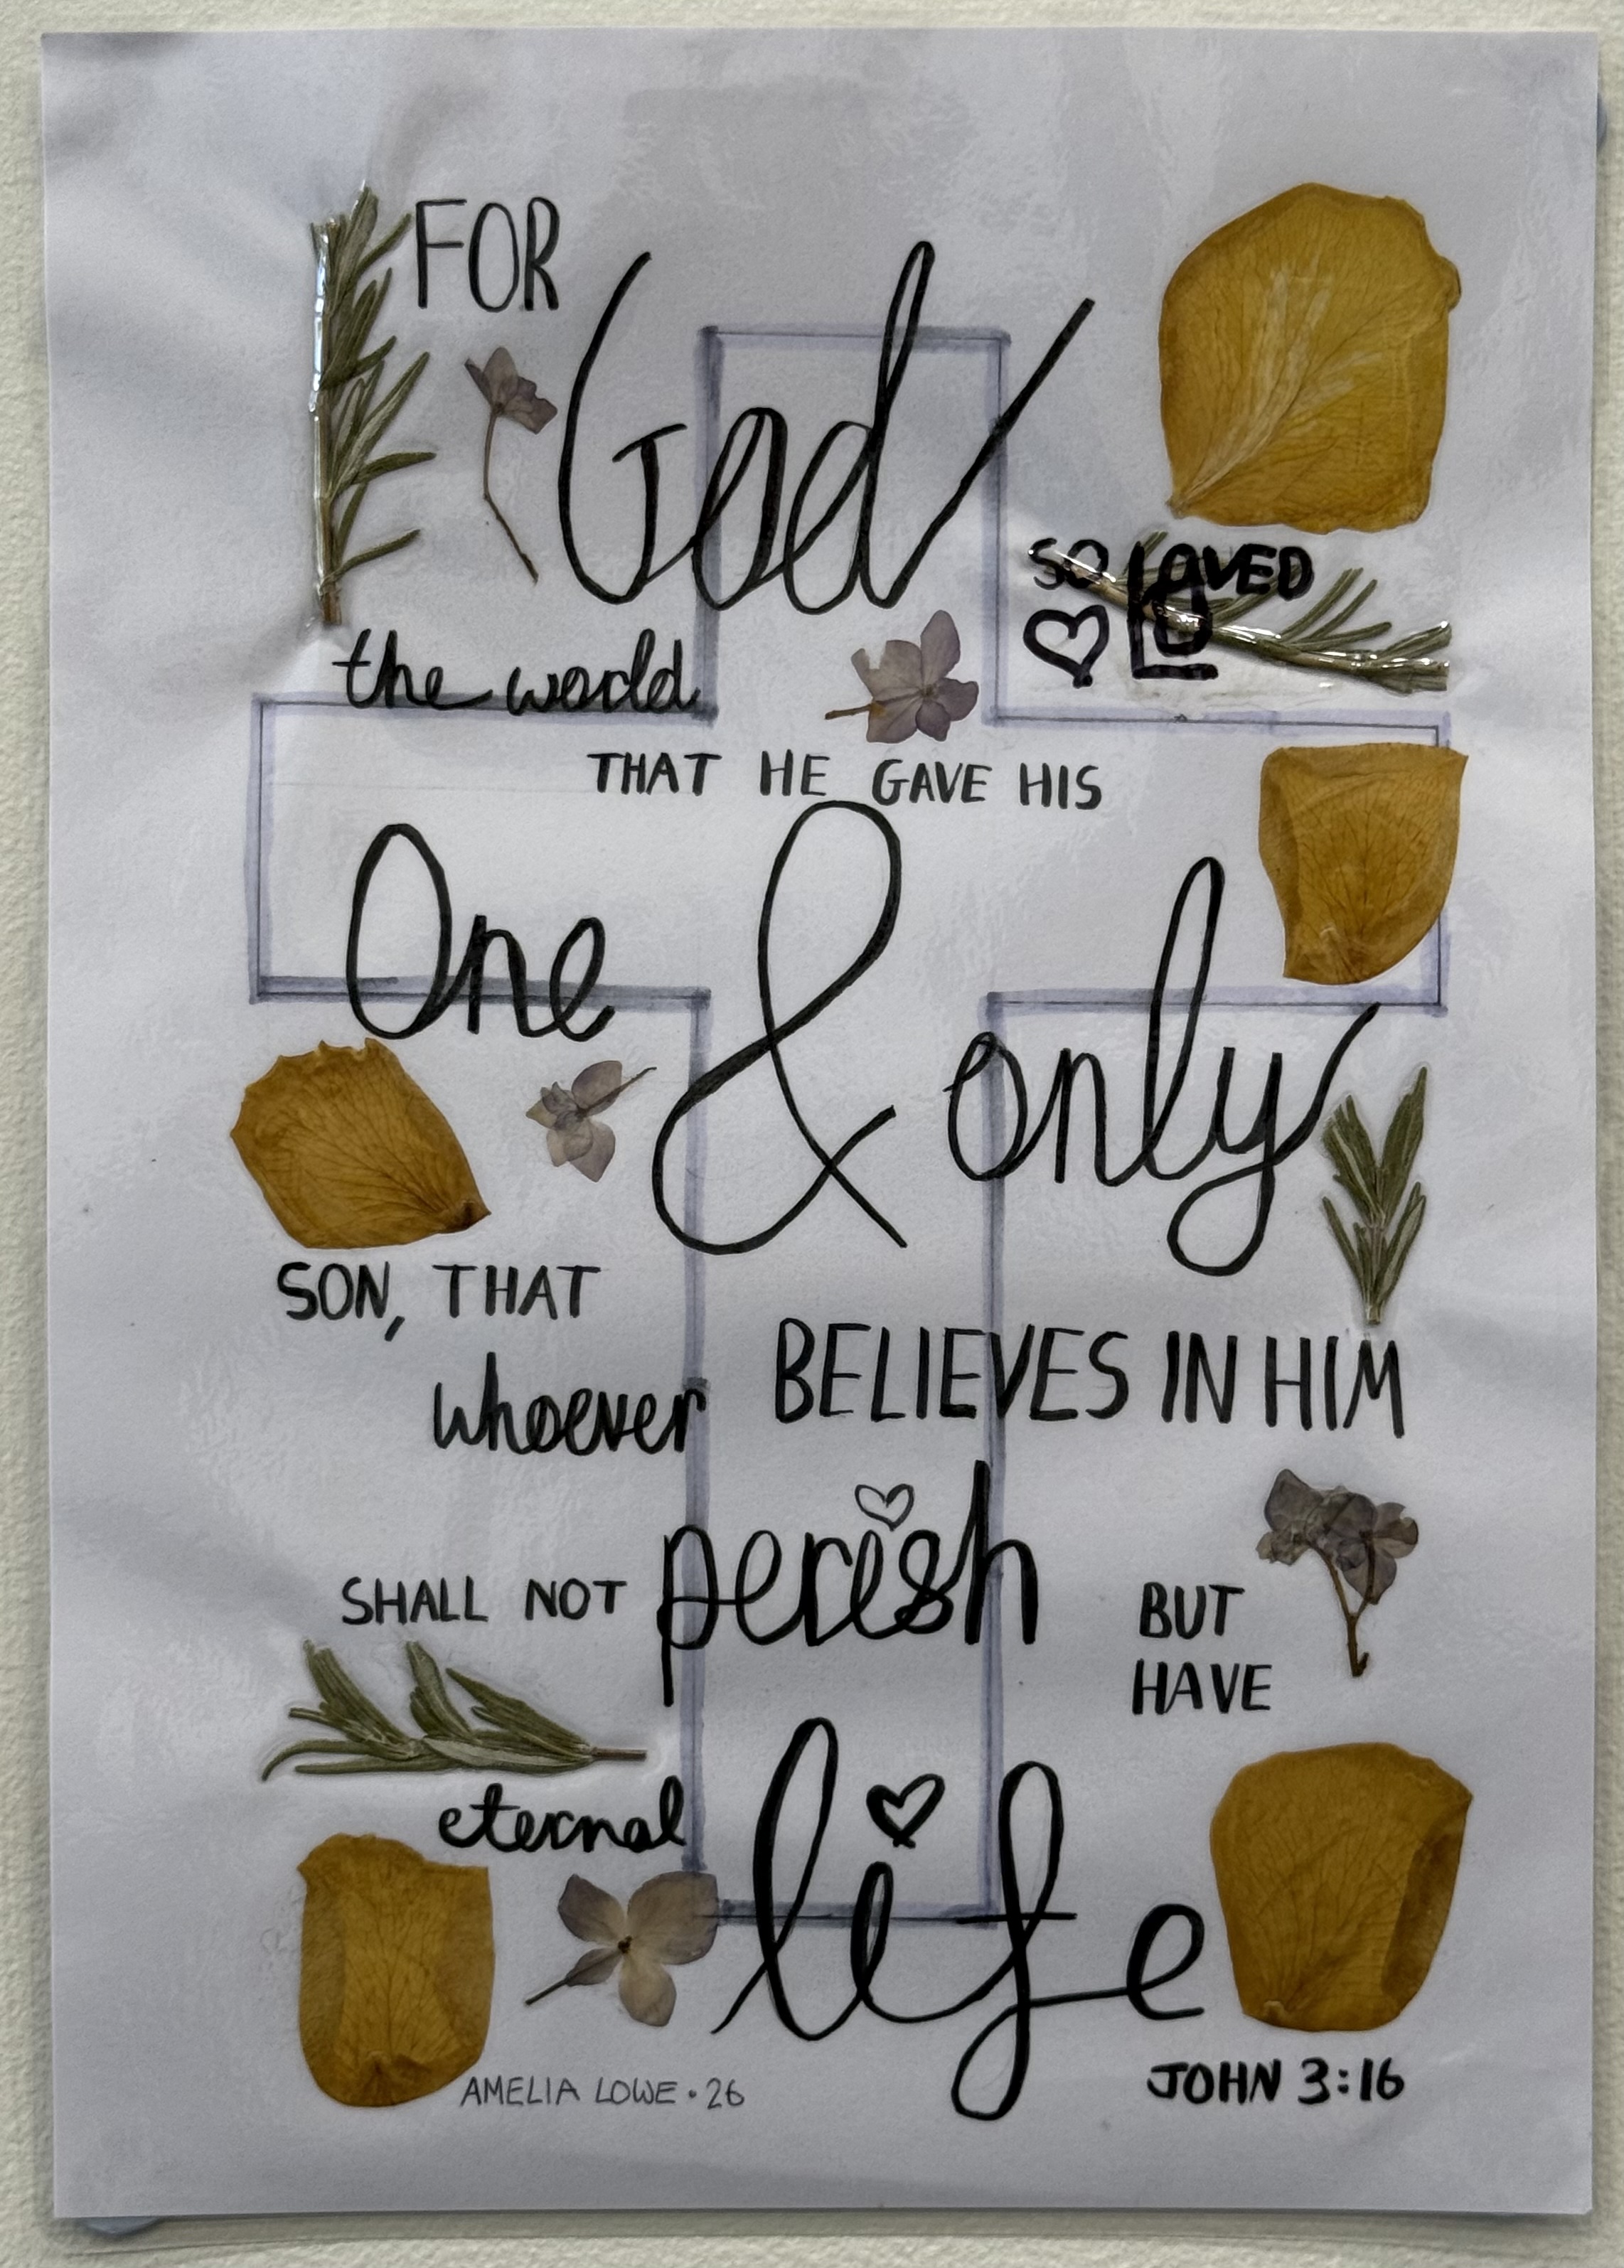 FOR
God
SO LOVED
the world
THAT HE GAVE HIS
One & only
SON, THAT
whoever BELIEVES IN HIM
SHALL NOT perish BUT
HAVE
eternal life
AMELIA LOWE • 26
JOHN 3:16